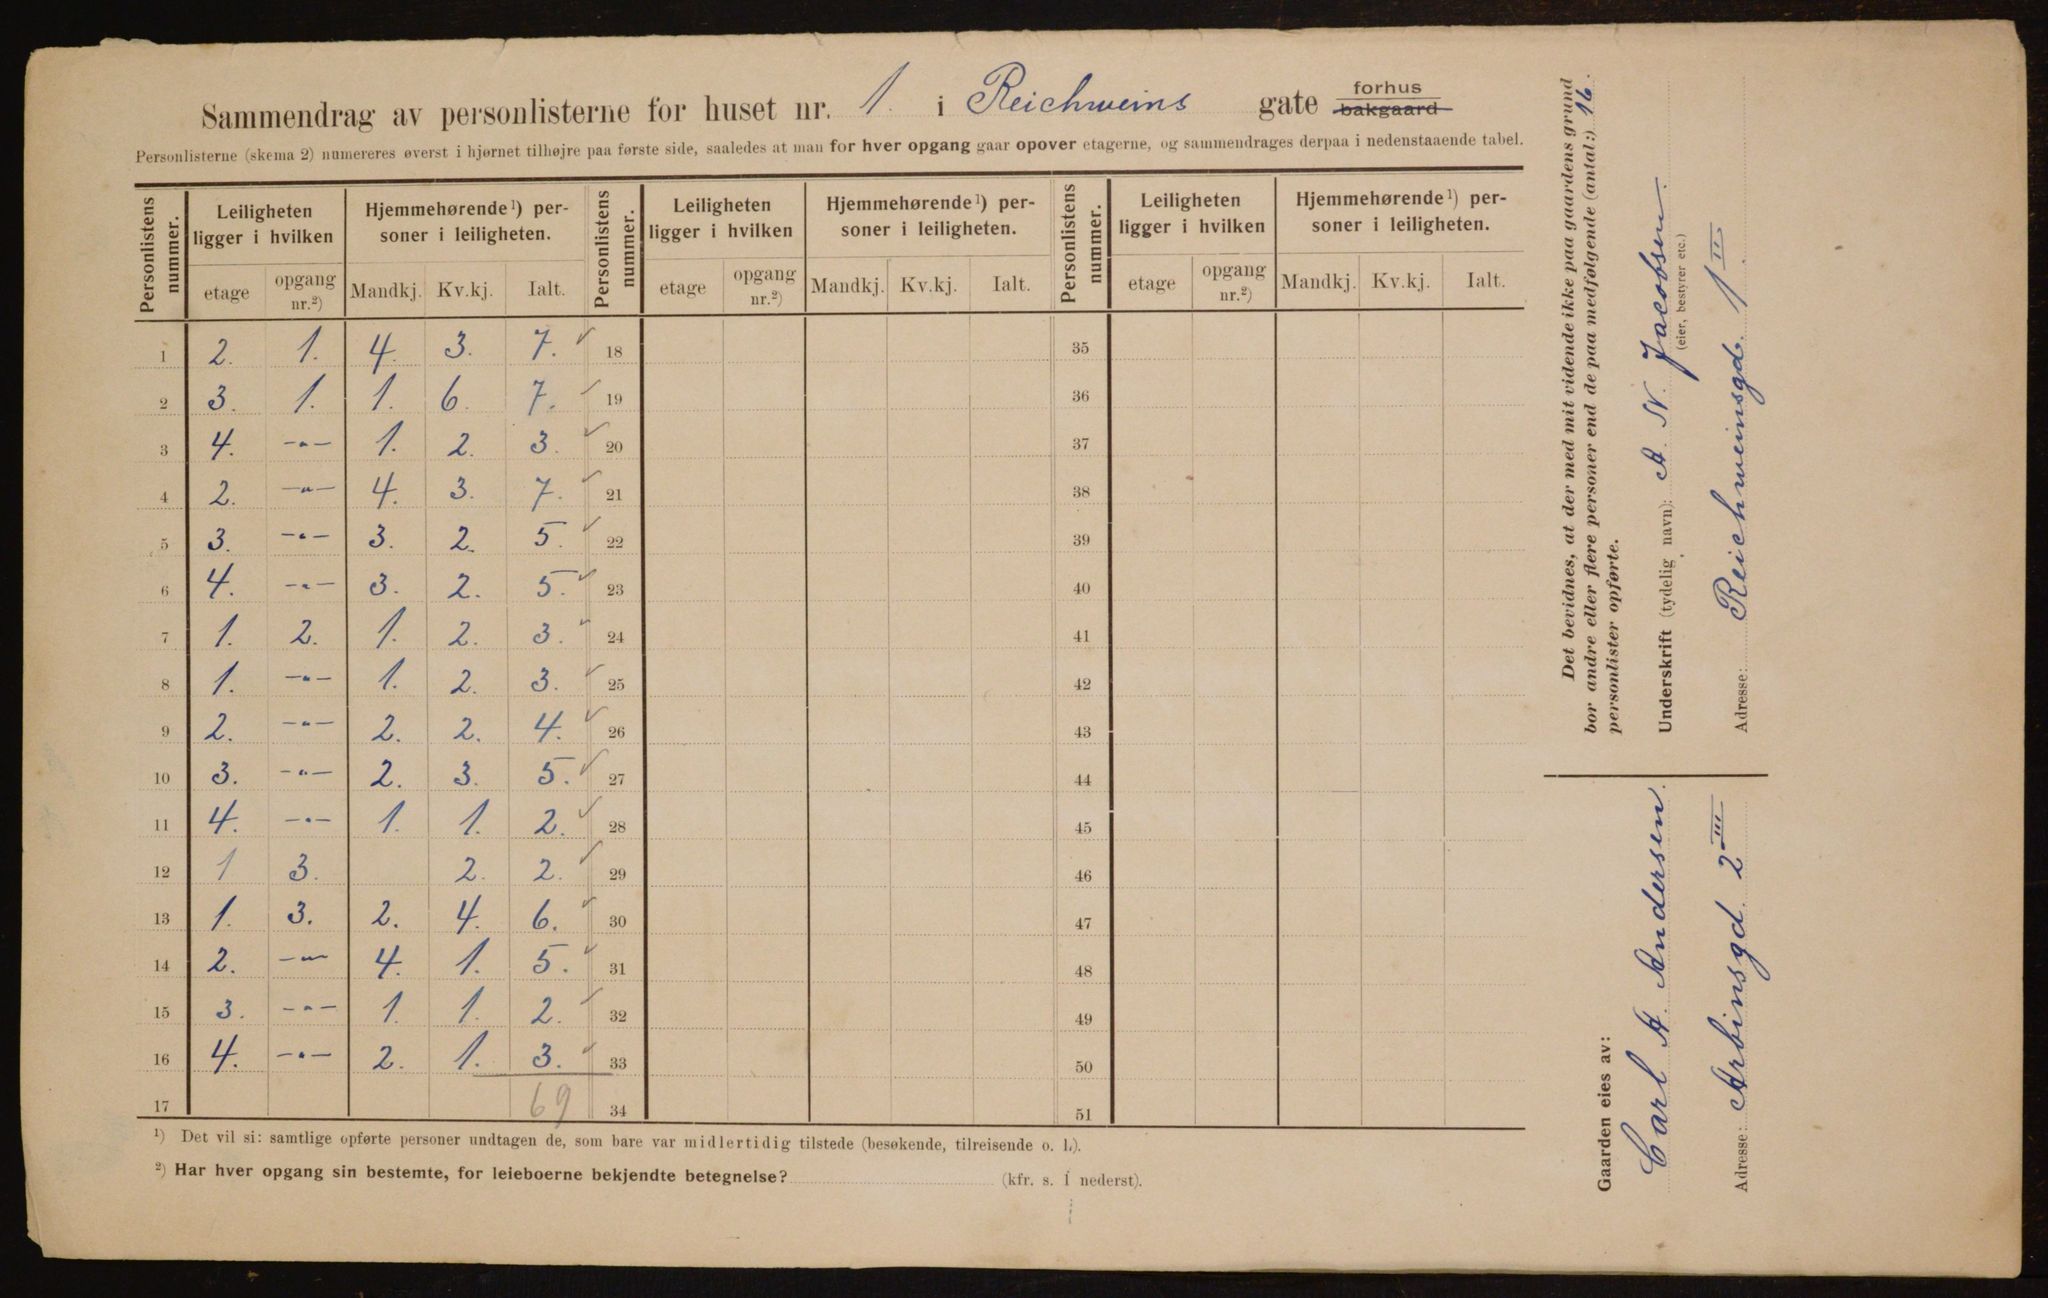 Sammendrag av personlisterne for huset nr. 1. i Reichweins gate forhus bakgaard
Personlisterne (skema 2) numereres øverst i hjørnet tilhøjre paa første side, saaledes at man for hver opgang gaar opover etagerne, og sammendrages derpaa i nedenstaaende tabel.
Personlistens nummer. Leiligheten ligger i hvilken Hjemmehørende ¹) personer i leiligheten. Personlistens nummer. Leiligheten ligger i hvilken Hjemmehørende ¹) personer i leiligheten. Personlistens nummer. Leiligheten ligger i hvilken Hjemmehørende ¹) personer i leiligheten.
etage opgang nr.²) Mandkj. Kv.kj. Ialt. etage opgang nr.²) Mandkj. Kv.kj. Ialt. etage opgang nr.²) Mandkj. Kv.kj. Ialt.
1 2. 1. 4. 3. 7. ✓ 18 35
2 3. 1. 1. 6. 7. ✓ 19 36
3 4. -"- 1. 2. 3. ✓ 20 37
4 2. -"- 4. 3. 7. ✓ 21 38
5 3. -"- 3. 2. 5. ✓ 22 39
6 4. -"- 3. 2. 5. ✓ 23 40
7 1. 2. 1. 2. 3. ✓ 24 41
8 1. -"- 1. 2. 3. ✓ 25 42
9 2. -"- 2. 2. 4. ✓ 26 43
10 3. -"- 2. 3. 5. ✓ 27 44
11 4. -"- 1. 1. 2. ✓ 28 45
12 1 3. 2. 2. ✓ 29 46
13 1. 3. 2. 4. 6. ✓ 30 47
14 2. -"- 4. 1. 5. ✓ 31 48
15 3. -"- 1. 1. 2. ✓ 32 49
16 4. -"- 2. 1. 3. ✓ 33 50
17 69 34 51
¹) Det vil si: samtlige opførte personer undtagen de, som bare var midlertidig tilstede (besøkende, tilreisende o. l.).
²) Har hver opgang sin bestemte, for leieboerne bekjendte betegnelse? (kfr. s. 1 nederst).
Det bevidnes, at der med mit vidende ikke paa gaardens grund
bor andre eller flere personer end de paa medfølgende (antal:) 16.
personlister opførte.
Underskrift (tydelig navn): A. N. Jacobsen.
(eier, bestyrer etc.)
Adresse: Reichweinsgd. 1 III
Gaarden eies av:
Carl A. Andersen.
Adresse: Arbinsgd. 2 III